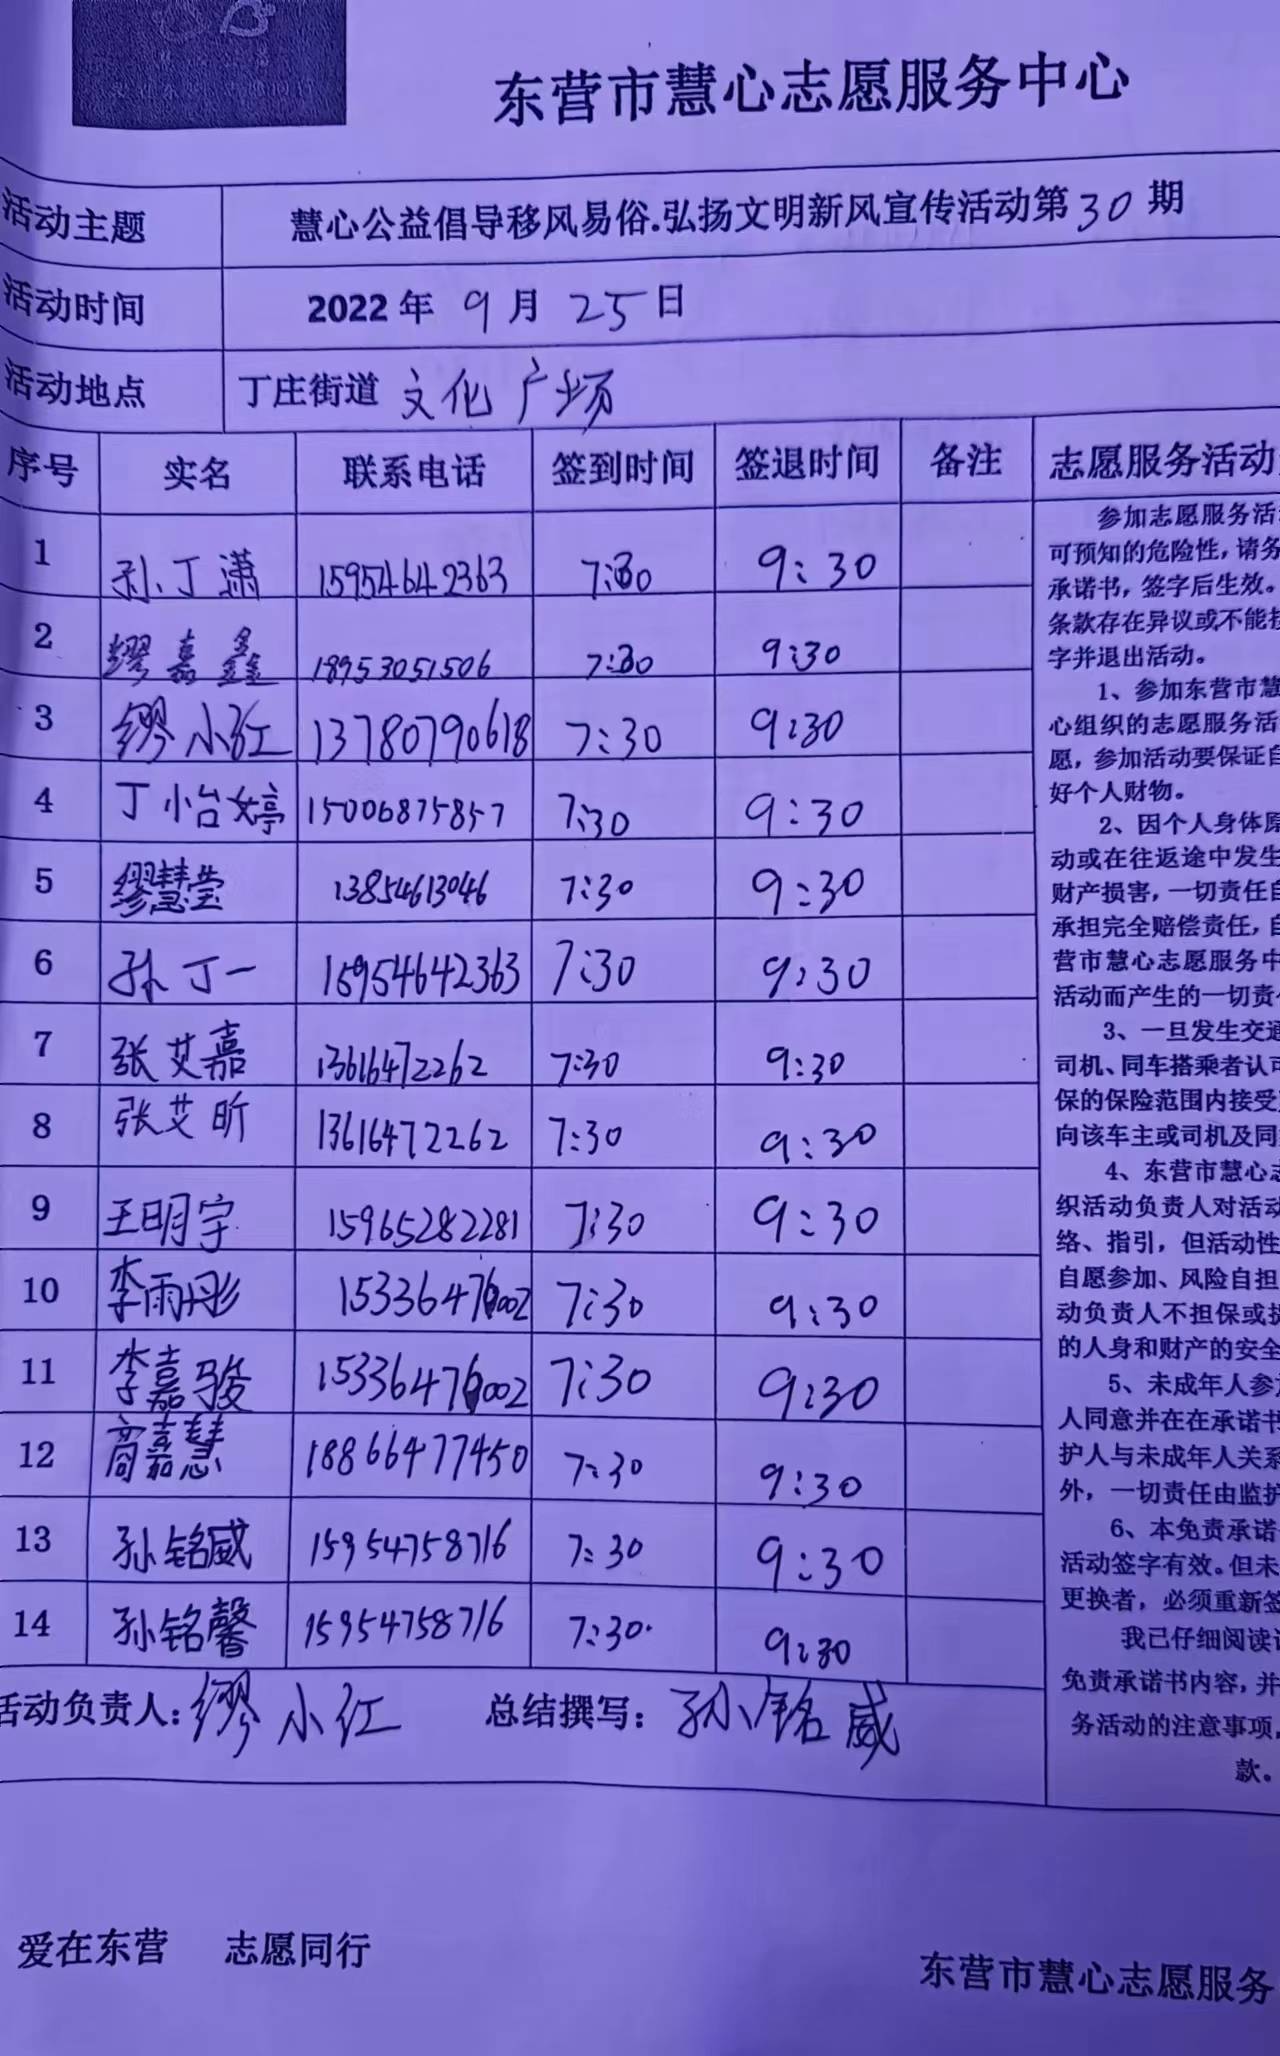 东营市慧心志愿服务中心
活动主题 慧心公益倡导移风易俗.弘扬文明新风宣传活动第30期
活动时间 2022年9月25日
活动地点 丁庄街道 文化广场
序号 实名 联系电话 签到时间 签退时间 备注
1 孙丁潇 15954642363 7:30 9:30
2 缪嘉鑫 18953051506 7:30 9:30
3 缪小红 13780790618 7:30 9:30
4 丁小台婷 15006875857 7:30 9:30
5 缪慧莹 13854613046 7:30 9:30
6 孙丁一 15954642363 7:30 9:30
7 张艾嘉 13616472262 7:30 9:30
8 张艾昕 13616472262 7:30 9:30
9 王明宇 15965282281 7:30 9:30
10 李雨彤 15336476002 7:30 9:30
11 李嘉骏 15336476002 7:30 9:30
12 商嘉慧 18866477450 7:30 9:30
13 孙铭威 15954758716 7:30 9:30
14 孙铭馨 15954758716 7:30. 9:30
活动负责人:缪小红 总结撰写:孙铭威
志愿服务活动
参加志愿服务活
可预知的危险性,请务
承诺书,签字后生效。
条款存在异议或不能
字并退出活动。
1、参加东营市慧
心组织的志愿服务活
愿,参加活动要保证自
好个人财物。
2、因个人身体原
动或在往返途中发生
财产损害,一切责任自
承担完全赔偿责任,自
营市慧心志愿服务中
活动而产生的一切责
3、一旦发生交通
司机、同车搭乘者认可
保的保险范围内接受
向该车主或司机及同
4、东营市慧心志
织活动负责人对活动
络、指引,但活动性
自愿参加、风险自担
动负责人不担保或
的人身和财产的安全
5、未成年人参
人同意并在在承诺书
护人与未成年人关系
外,一切责任由监护
6、本免责承诺
活动签字有效。但未
更换者,必须重新签
我已仔细阅读
免责承诺书内容,并
务活动的注意事项,
款。
爱在东营 志愿同行
东营市慧心志愿服务